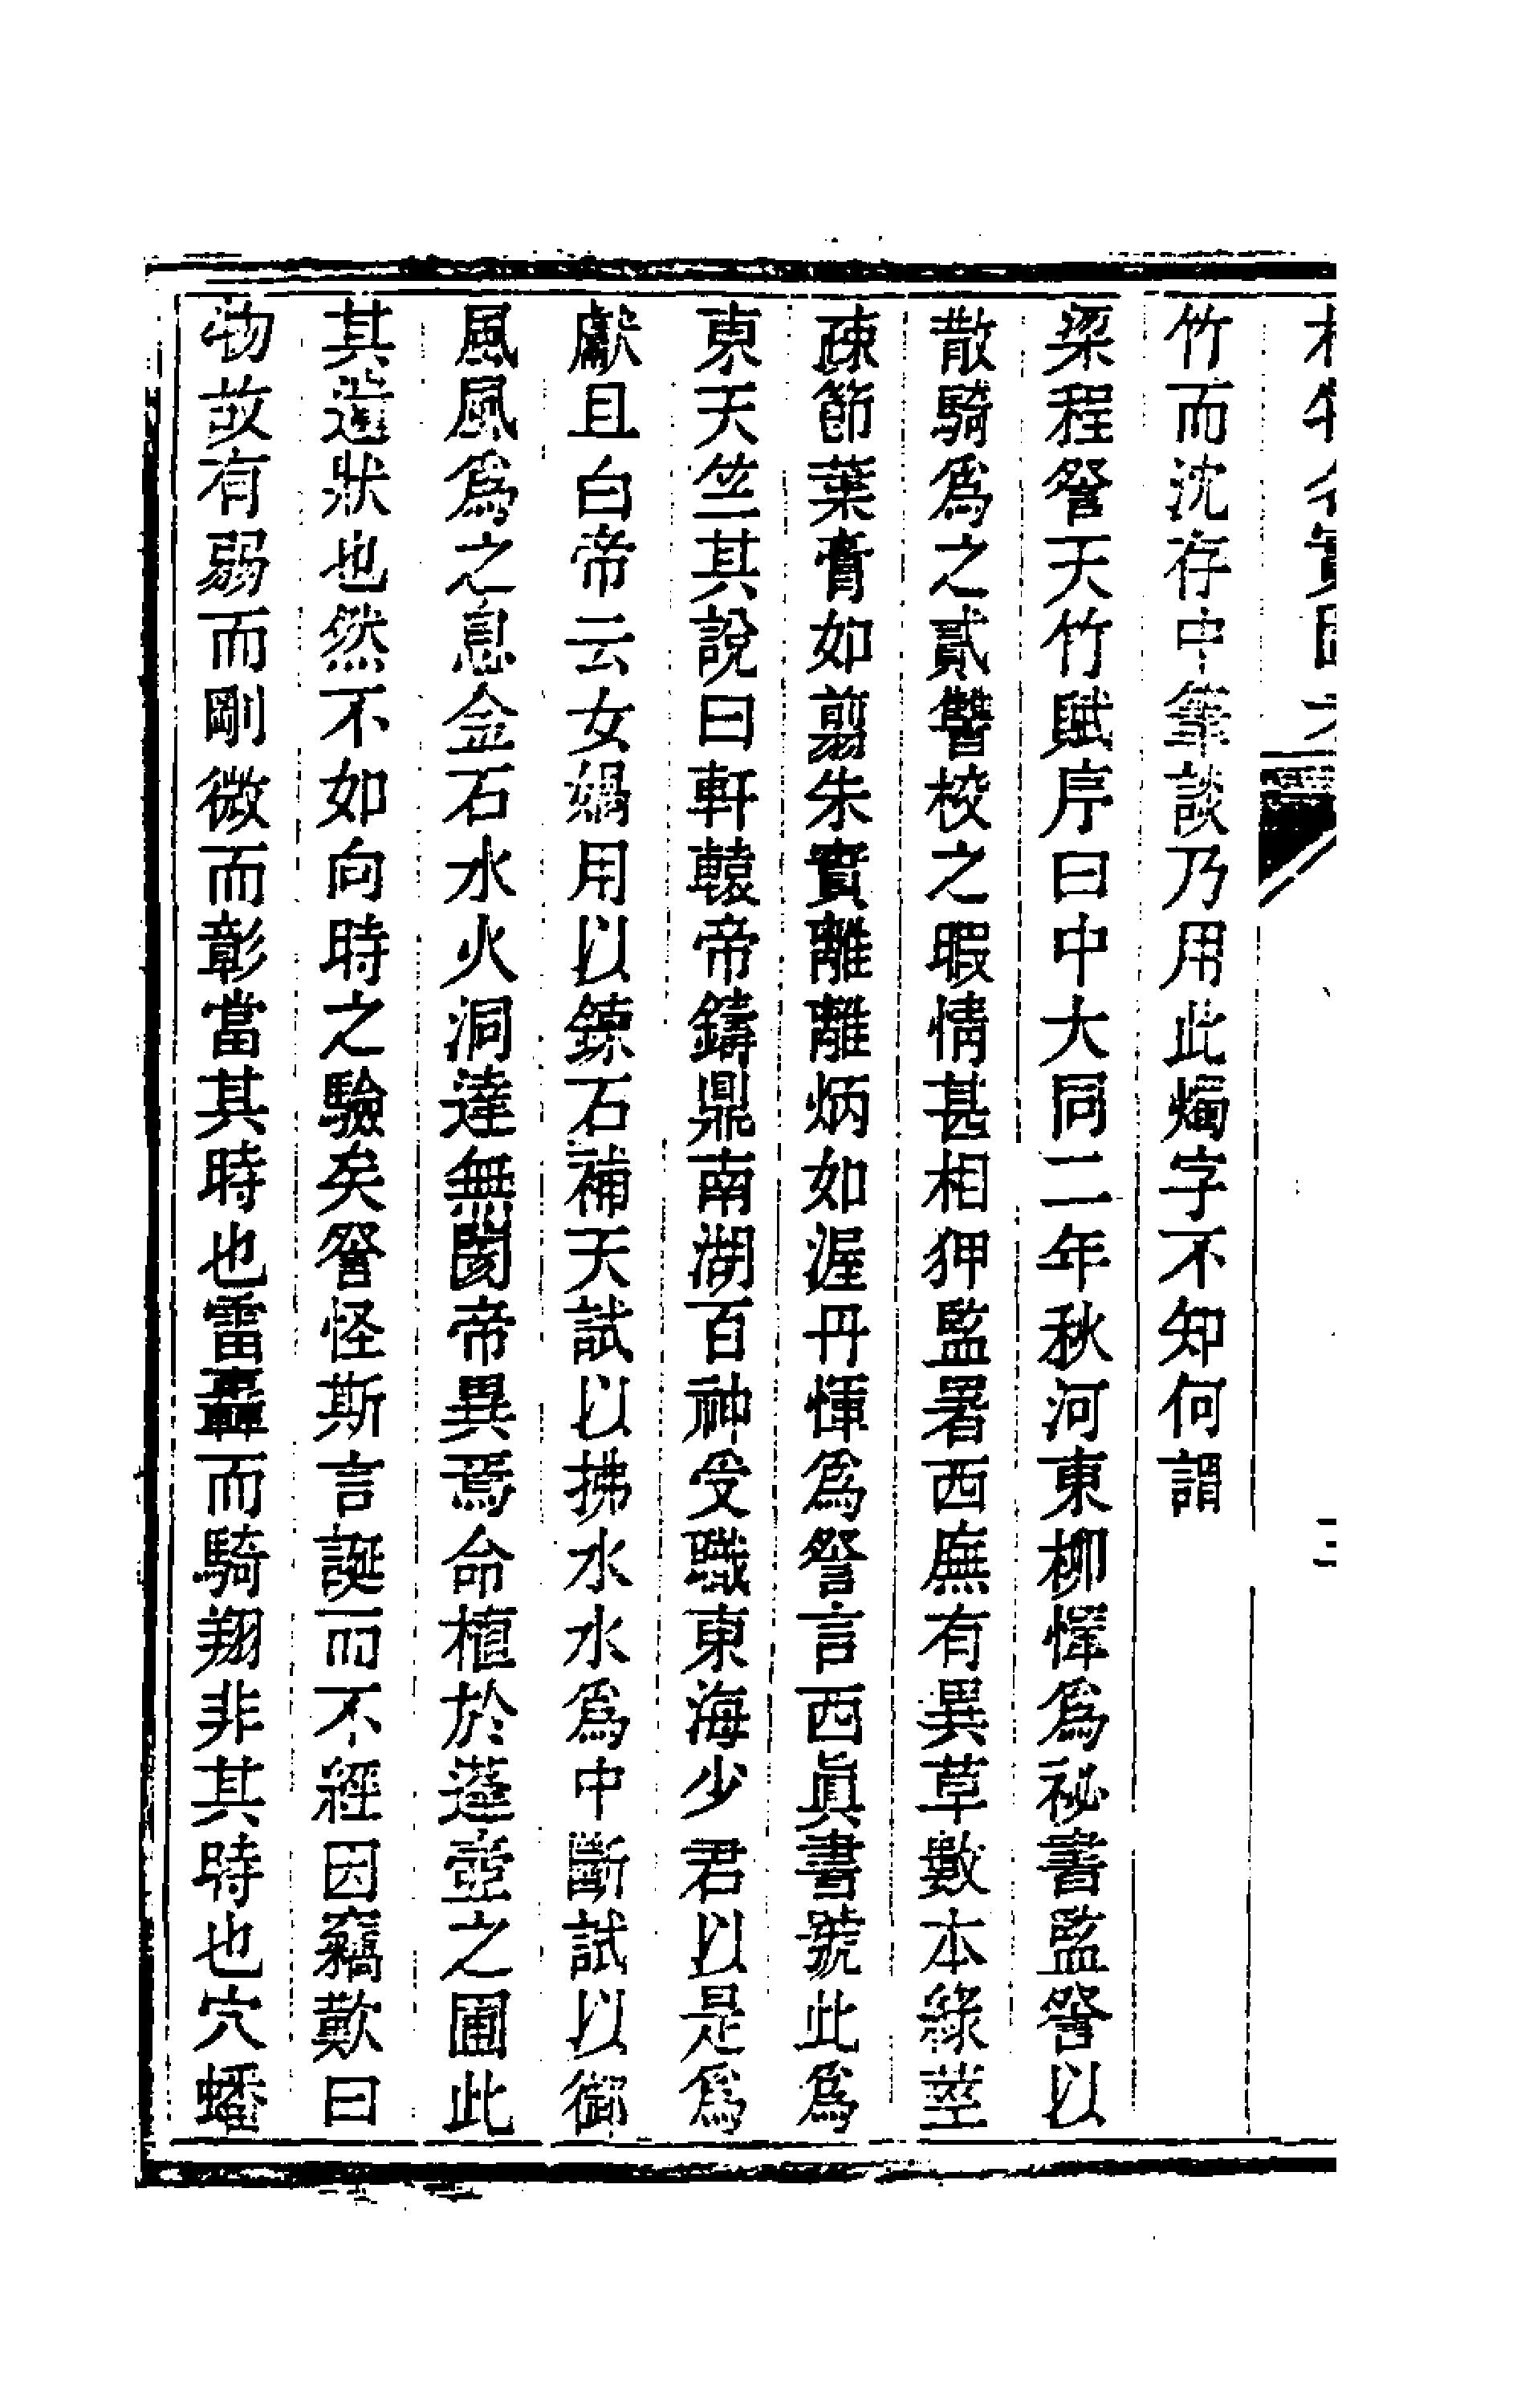 竹而沈存中筆談乃用此燭字不知何謂
梁程詧天竹賦序曰中大同二年秋河東柳惲爲祕書監詧以
散騎爲之貳讐校之暇情甚相狎監署西廡有異草數本綠莖
疎節葉膏如翦朱實離離炳如渥丹惲爲詧言西眞書號此爲
東天竺其說曰軒轅帝鑄鼎南湖百神受職東海少君以是爲
獻且白帝云女媧用以鍊石補天試以拂水水爲中斷試以御
風風爲之息金石水火洞達無閡帝異焉命植於蓬壺之圃此
其遺狀也然不如向時之驗矣詧怪斯言誕而不經因竊歎曰
物故有弱而剛微而彰當其時也雷轟而騎翔非其時也穴蟠